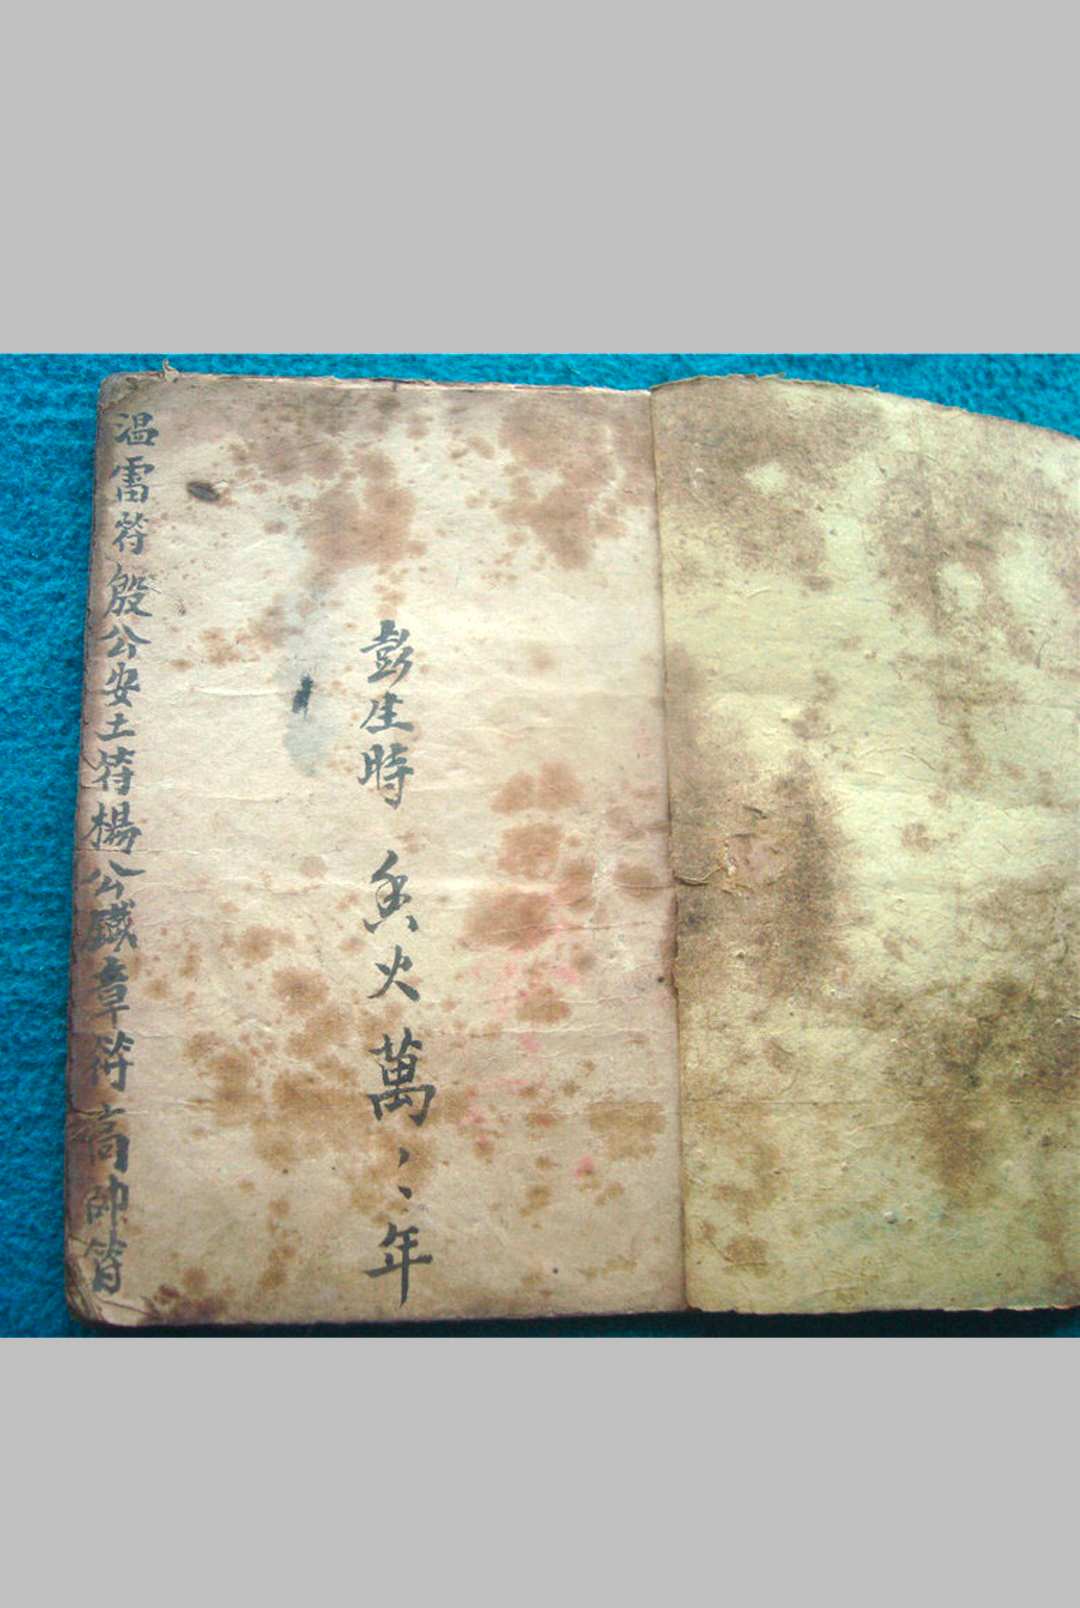 彭生時 香火萬〻〻年
温雷符殷公安土符楊公鐵章符高帥符